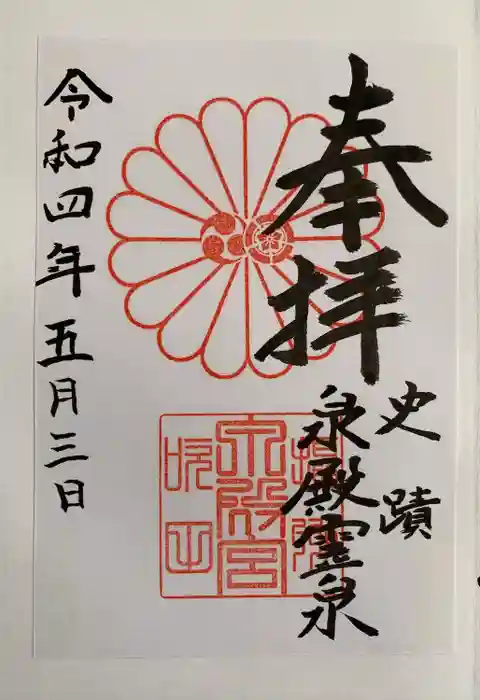 奉拝
史蹟
泉殿霊泉
泉殿宮
令和四年五月三日